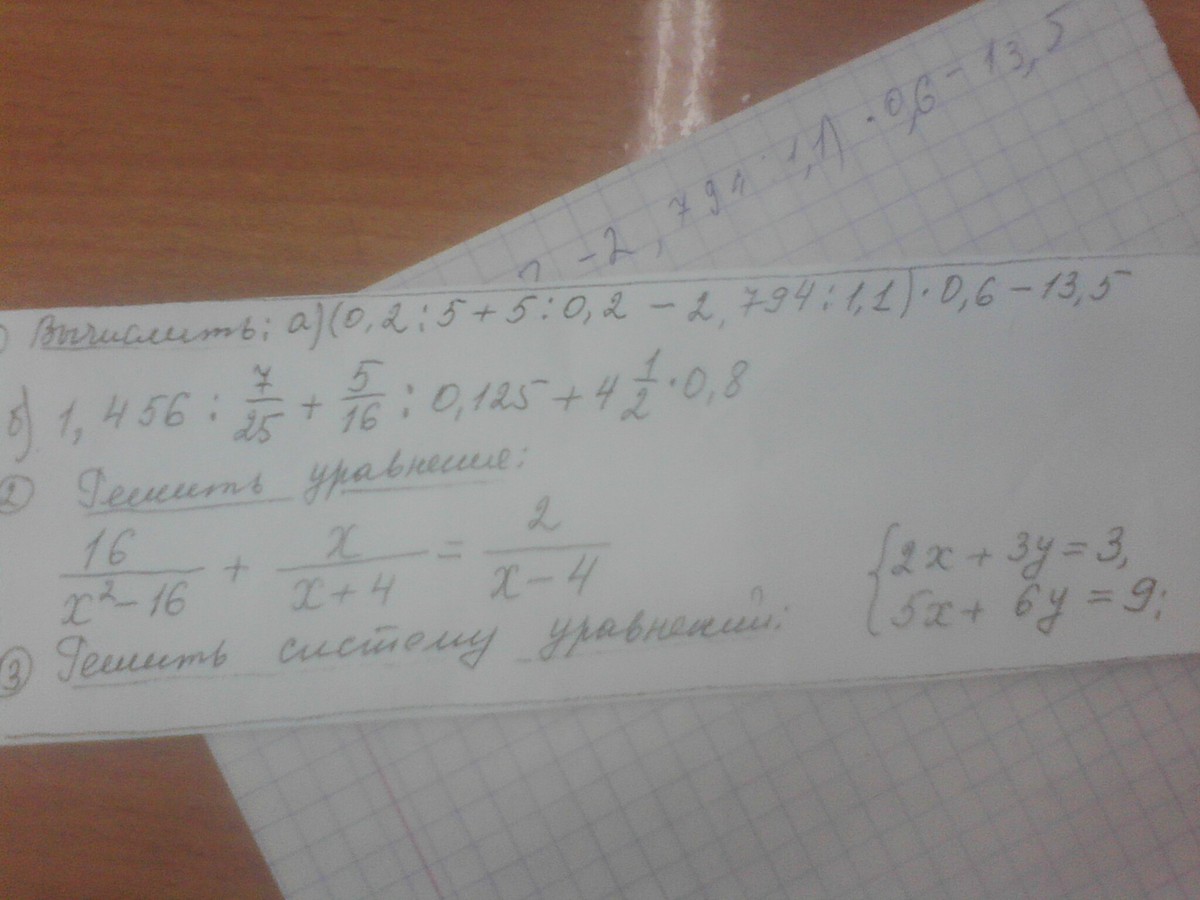 -2,794:1,1)·0,6-13,5
) Вычислить: а)(0,2:5+5:0,2-2,794:1,1)·0,6-13,5
б) 1,456 : 7/25 + 5/16 : 0,125 + 4 1/2 · 0,8
② Решить уравнение:
16/(x²-16) + x/(x+4) = 2/(x-4)
③ Решить систему уравнений:
{2x+3y=3,
5x+6y=9;